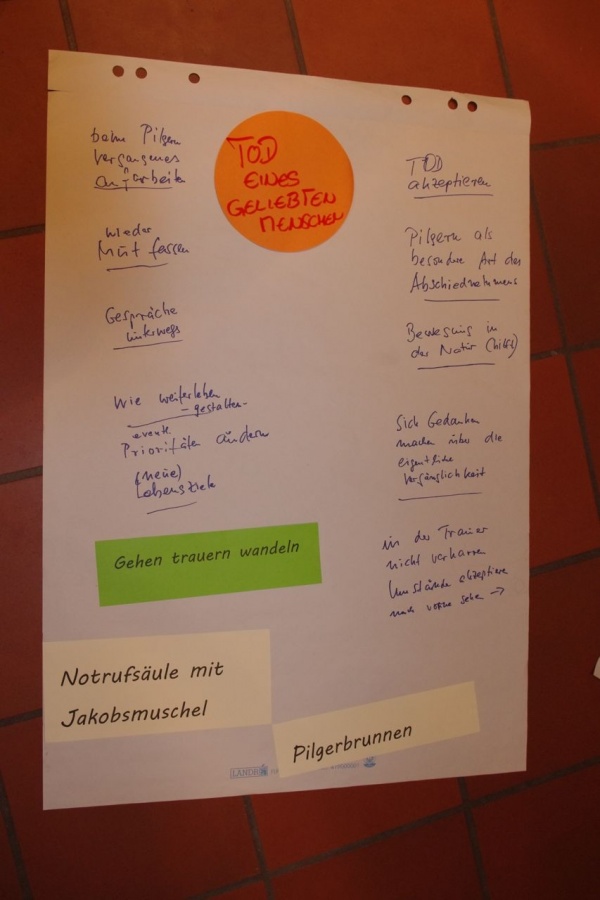 TOD
EINES
GELIEBTEN
MENSCHEN
beim Pilgern
Vergangenes
an-/arbeiten
wieder
Mut fassen
Gespräche
unterwegs
Wie weiterleben
- gestalten -
eventl.
Prioritäten ändern
(neue)
Lebensziele
TOD
akzeptieren
Pilgern als
besondere Art des
Abschiednehmens
Bewegung in
der Natur (hilft)
Sich Gedanken
machen über die
eigentliche
Vergänglichkeit
in der Trauer
nicht verharren
Umstände akzeptieren
nach vorne sehen →
Gehen trauern wandeln
Notrufsäule mit
Jakobsmuschel
Pilgerbrunnen